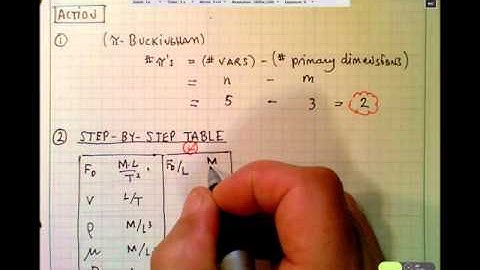 ACTION
① (π-BUCKINGHAM)
# π's = (# VARS) - (# primary dimensions)
= n - m
= 5 - 3 = 2
② STEP-BY-STEP TABLE
F_D M·L/T² F_D/L M
V L/T
ρ M/L³
μ M/L
D